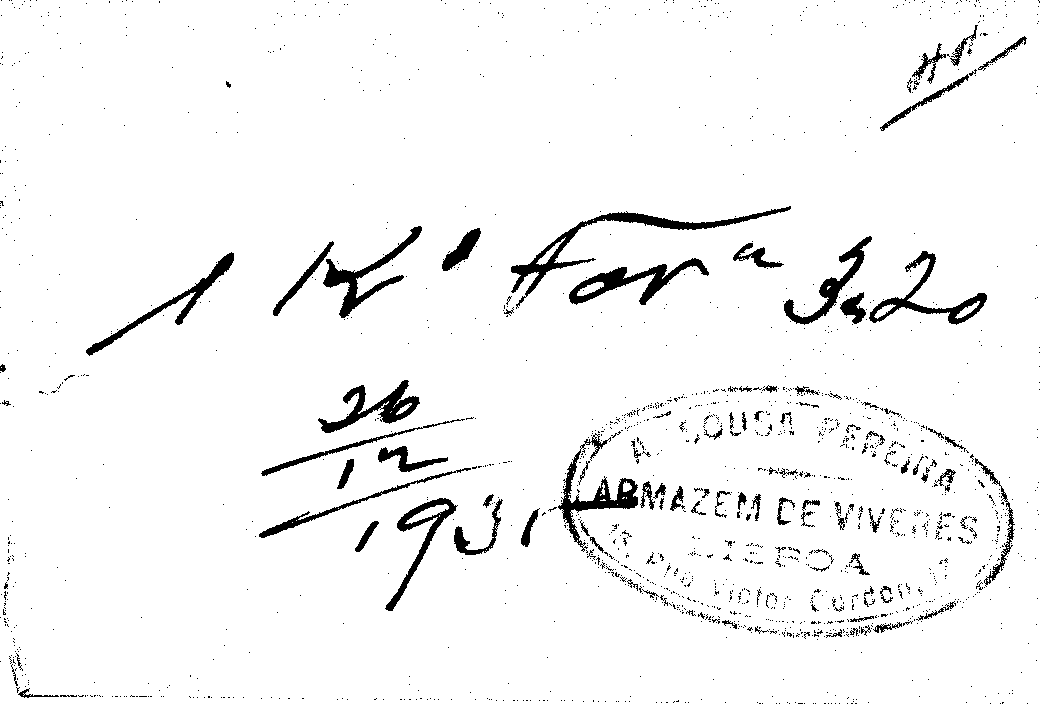 1 K.º Far.ª 3$20
26
12
1931
A SOUSA PEREIRA
ARMAZEM DE VIVERES
LISBOA
Rua Victor Cordon